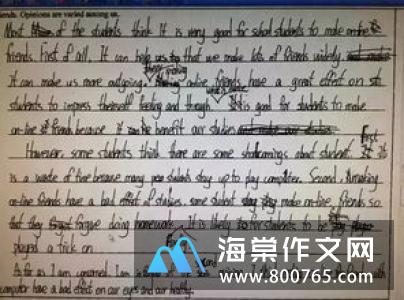 ends. Opinions are varied among us.
Most of the students think It is very good for school students to make on-line
friends. First of all, It can help us that we make lots of friends widely
It can make us more outgoing. Making online friends have a great effect on
students to impress theirself feeling and though. It is good for students to make
on-line friends because It can benefit our studies
However, some students think there are some shortcomings about student. First It
is a waste of time because many students stay up to play computer. Second, making
on-line friends have a bad effect of studies. some student make on-line friends so
that they forgive doing homework. It is likely for students to be
played a trick on
As far as I am concerned, I am
computer have a bad effect on our eyes and our healthy.
海棠作文网
www.800765.com